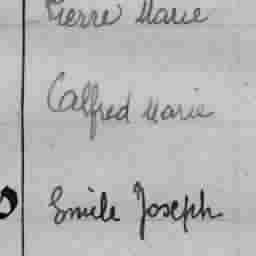 Pierre Marie
Calfred Marie
Emile Joseph